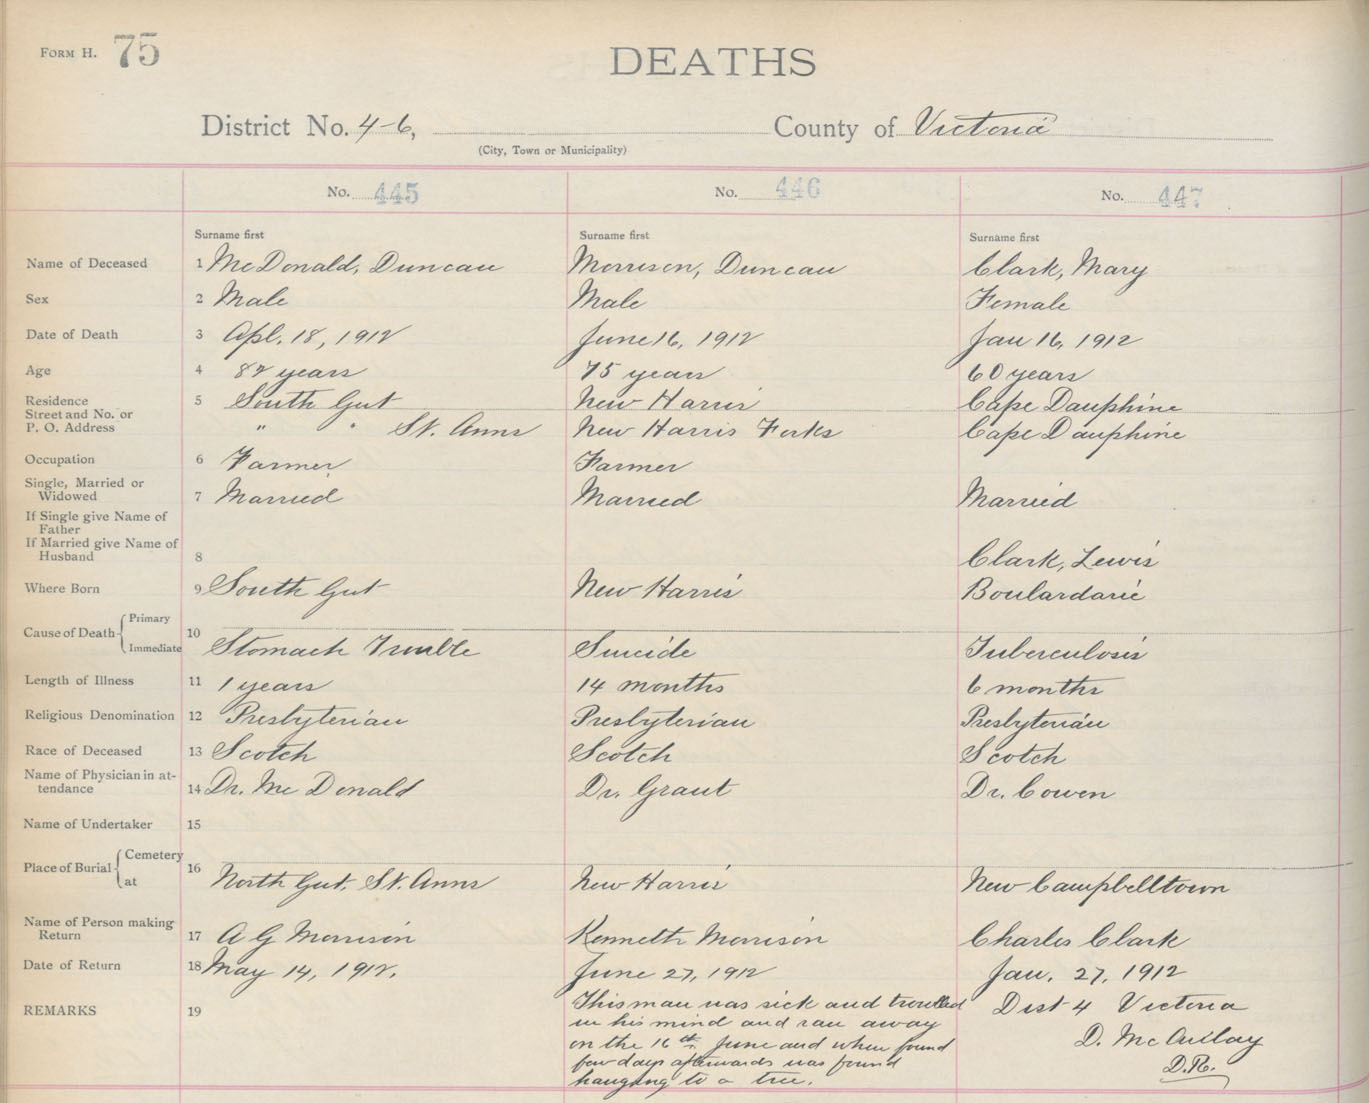 FORM H. 75
DEATHS
District No. 4-6, County of Victoria
(City, Town or Municipality)
No. 445 No. 446 No. 447
Surname first Surname first Surname first
Name of Deceased 1 McDonald, Duncan Morrison, Duncan Clark, Mary
Sex 2 Male Male Female
Date of Death 3 Apl. 18, 1912 June 16, 1912 Jan 16, 1912
Age 4 years 75 years 60 years
Residence 5 South Gut New Harris Cape Dauphine
Street and No. or
P. O. Address " " St. Anns New Harris Forks Cape Dauphine
Occupation 6 Farmer Farmer
Single, Married or
Widowed 7 Married Married Married
If Single give Name of
Father
If Married give Name of
Husband 8 Clark, Lewis
Where Born 9 South Gut New Harris Boulardarie
Primary
Cause of Death 10
Immediate Stomach Trouble Suicide Tuberculosis
Length of Illness 11 1 years 14 months 6 months
Religious Denomination 12 Presbyterian Presbyterian Presbyterian
Race of Deceased 13 Scotch Scotch Scotch
Name of Physician in at-
tendance 14 Dr. McDonald Dr. Grant Dr. Cowen
Name of Undertaker 15
Cemetery
Place of Burial 16
at North Gut. St. Anns New Harris New Campbelltown
Name of Person making
Return 17 A G Morrison Kenneth Morrison Charles Clark
Date of Return 18 May 14, 1912. June 27, 1912 Jan. 27, 1912
REMARKS 19
This man was sick and troubled
in his mind and ran away
on the 16th June and when found
few days afterwards was found
hanging to a tree.
Dist 4 Victoria
D. McAulay
D.R.